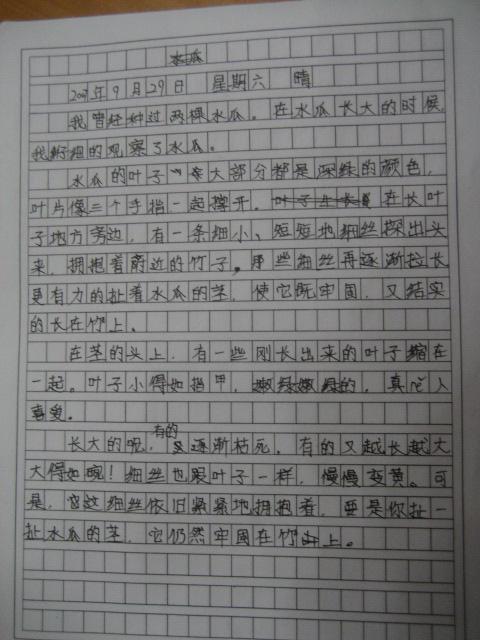 水瓜
2007年9月29日 星期六 晴
我曾经种过两棵水瓜。在水瓜长大的时候,
我仔细的观察了水瓜。
水瓜的叶子大部分都是深绿的颜色,
叶片像三个手指一起撑开。在长叶
子地方旁边,有一条细小、短短地细丝探出头
来,拥抱着附近的竹子。那些细丝再逐渐拉长
更有力的扯着水瓜的茎,使它既牢固,又结实
的长在竹上。
在茎的头上,有一些刚长出来的叶子缩在
一起。叶子小得如指甲,嫩绿嫩绿的,真吃人
喜爱。
长大的呢,有的逐渐枯死,有的又越长越大
大得如碗!细丝也跟叶子一样,慢慢变黄。可
是,这细丝依旧紧紧地拥抱着,要是你扯一
扯水瓜的茎,它仍然牢固在竹上。